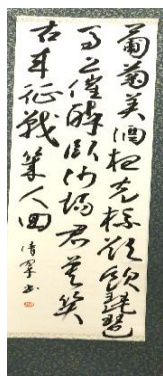 葡萄美酒夜光杯欲飲琵琶
馬上催醉臥沙場君莫笑
古来征戰幾人回
書